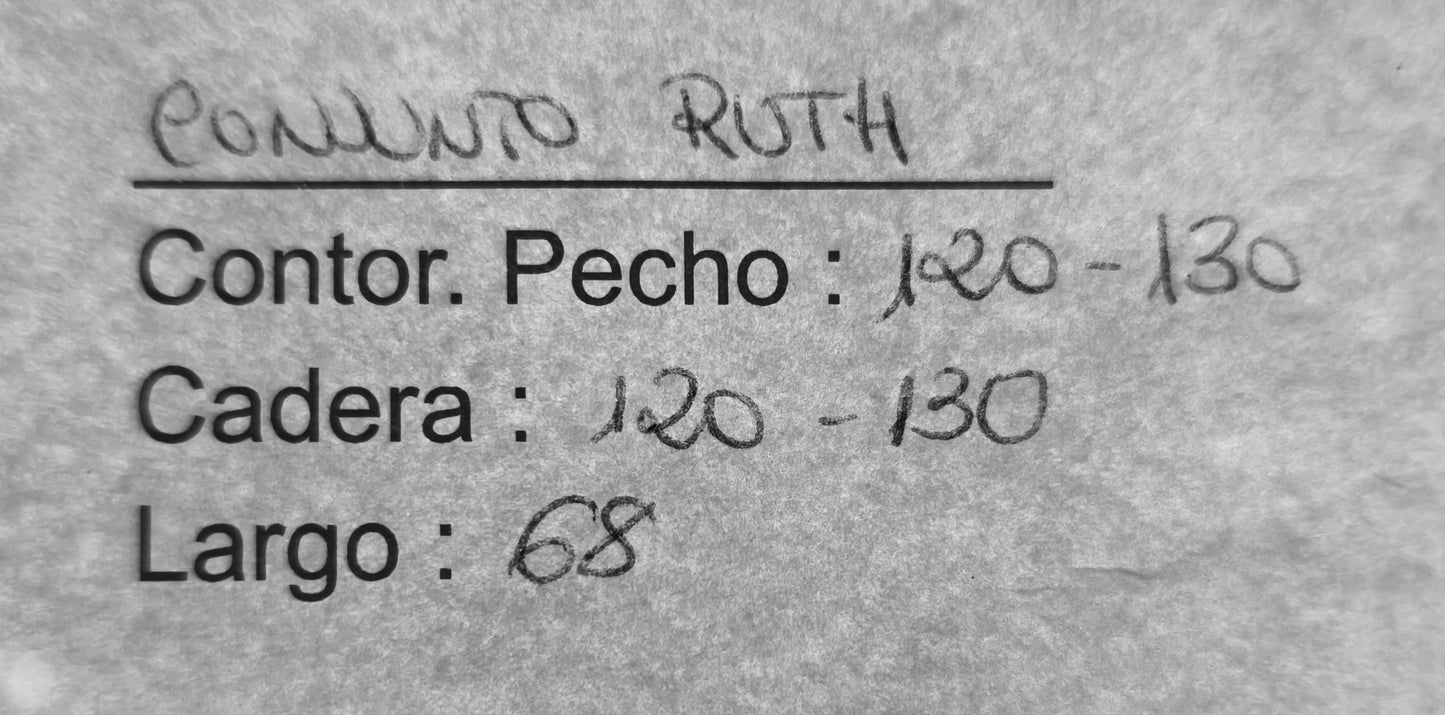 CONJUNTO RUTH
Contor. Pecho : 120 - 130
Cadera : 120 - 130
Largo : 68